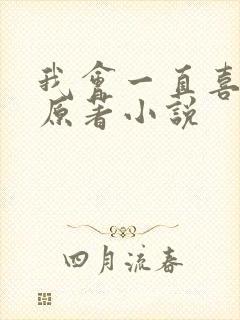 我會一直喜
原著小説
四月流春